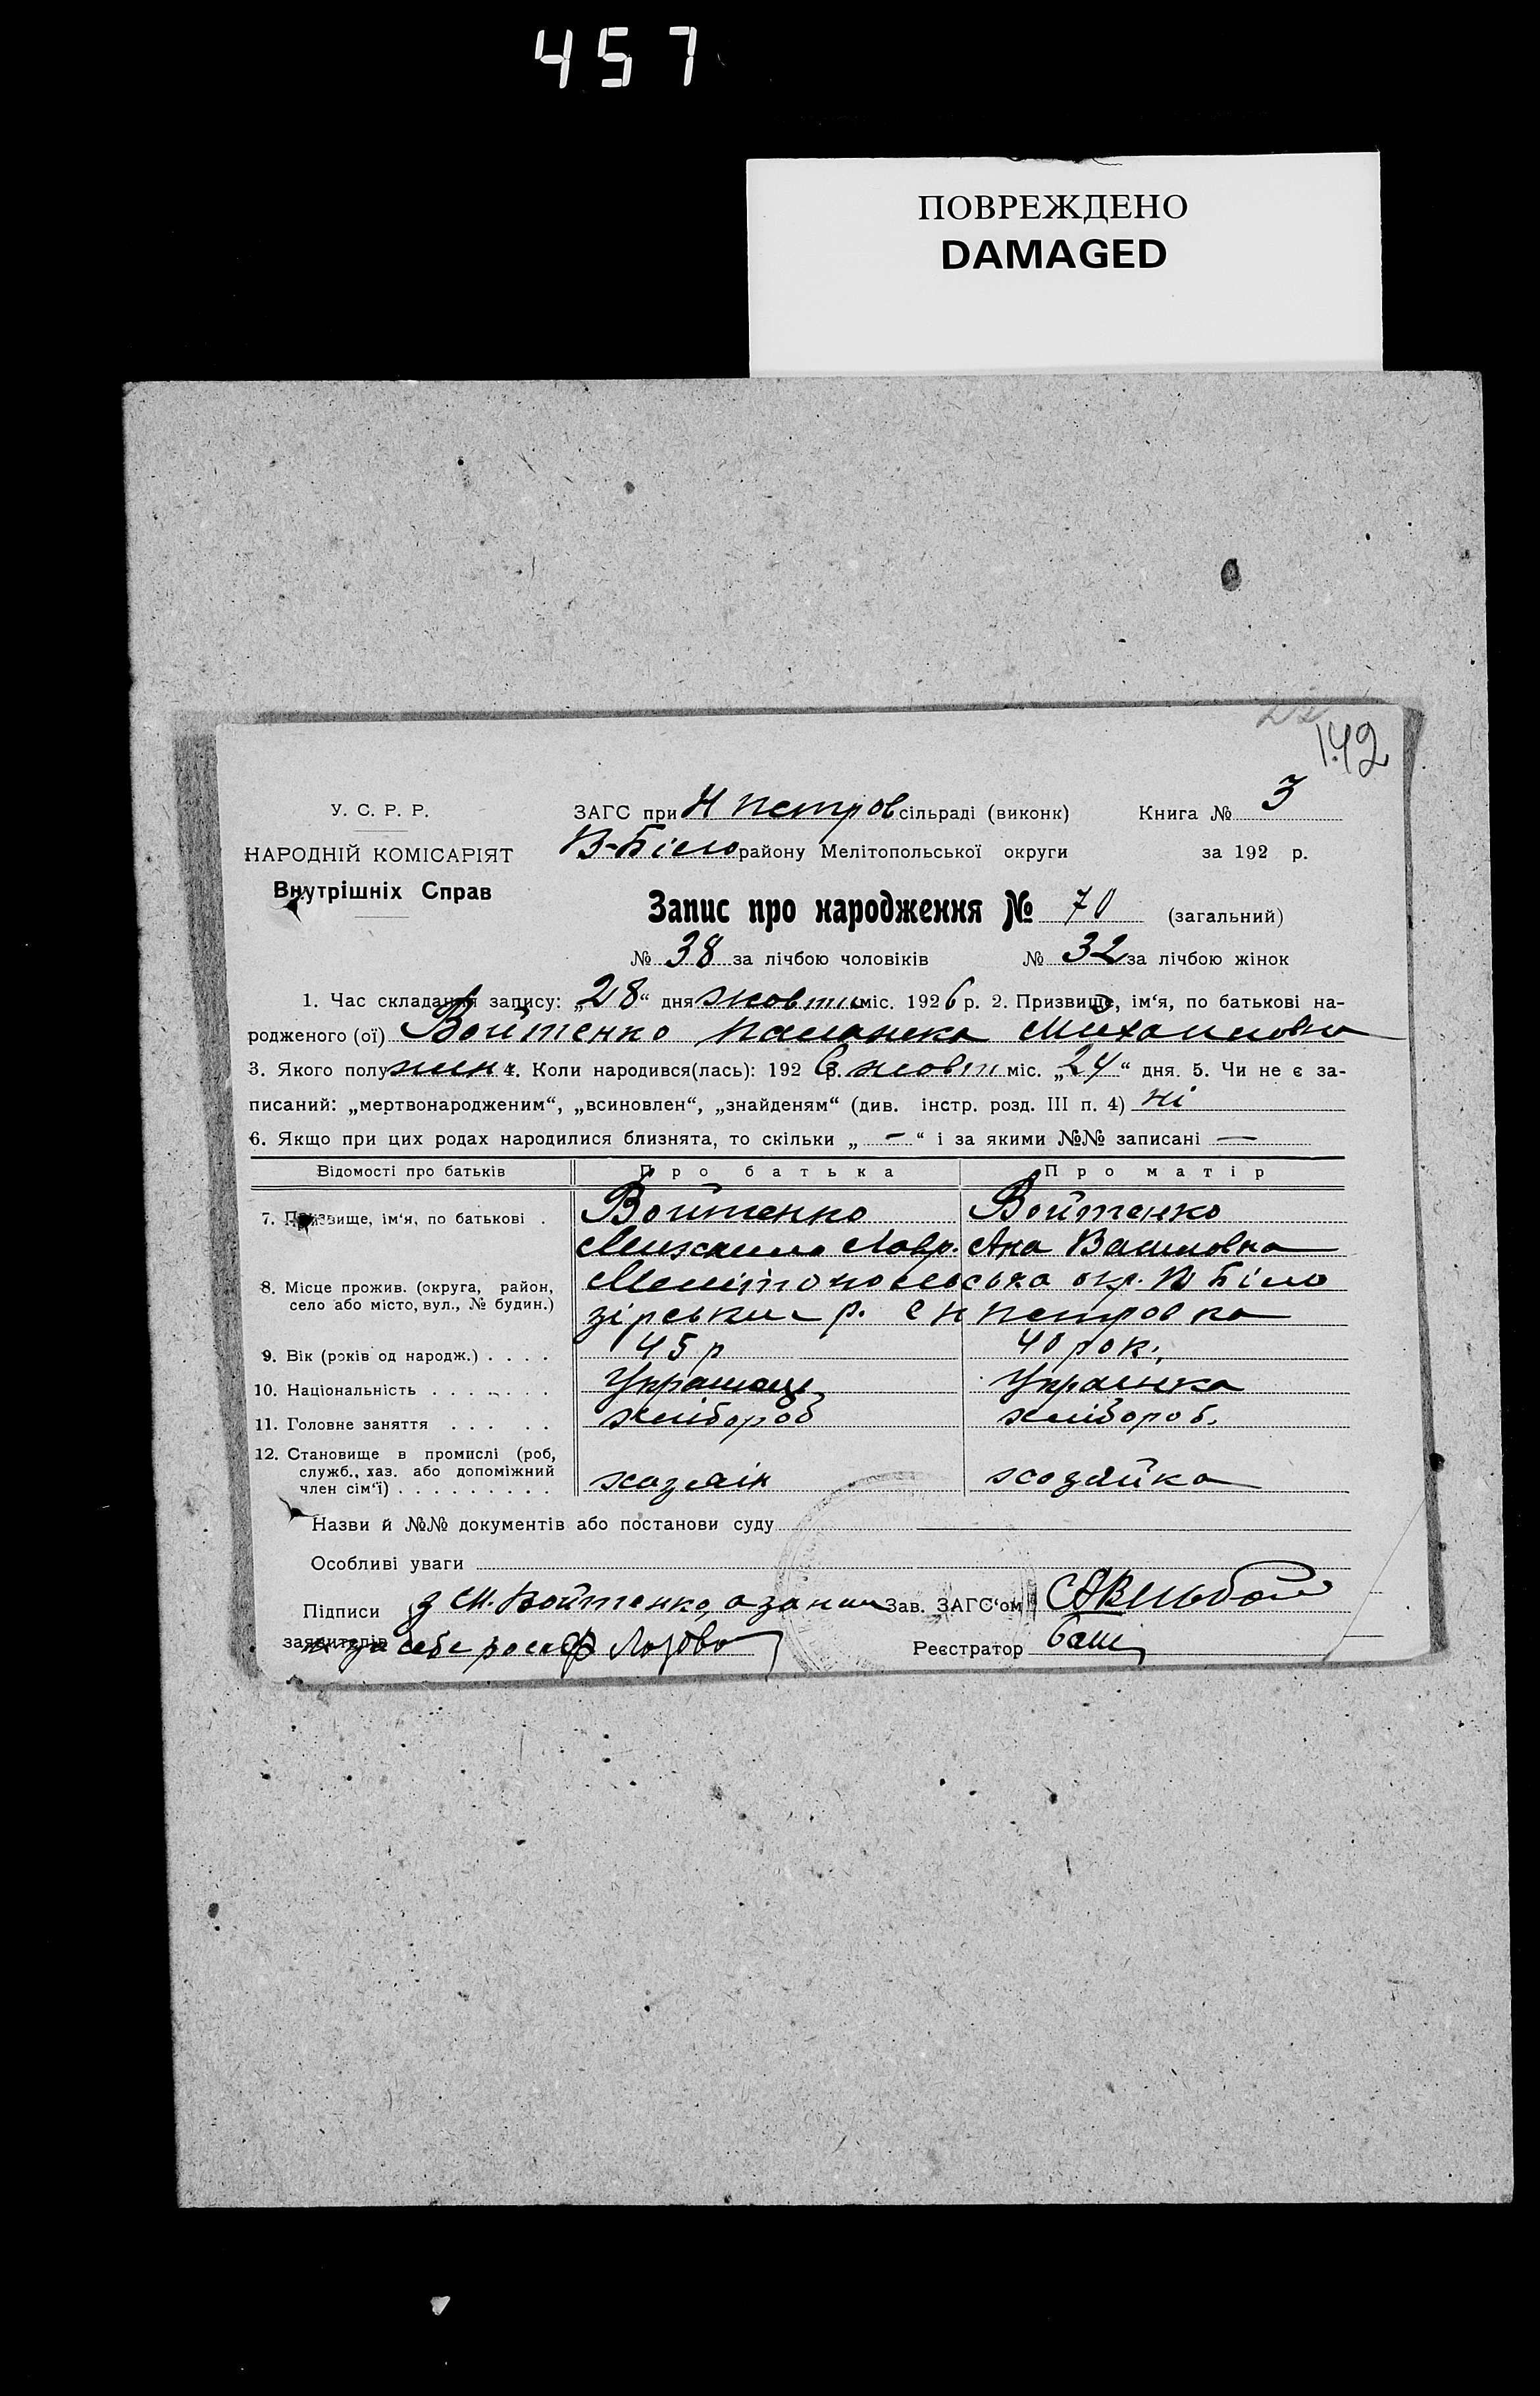 457
ПОВРЕЖДЕНО
DAMAGED
142
У. С. Р. Р.
ЗАГС при Н петров сільраді (виконк) Книга № 3
НАРОДНІЙ КОМІСАРІЯТ
В-Біло району Мелітопольської округи за 192 р.
Внутрішніх Справ
Запис про народження № 70 (загальний)
№ 38 за лічбою чоловіків № 32 за лічбою жінок
1. Час складання запису: „28“ дня жовтн міс. 1926 р. 2. Призвище, ім‘я, по батькові на-
родженого (ої) Войтенко Паланжка Михайловна
3. Якого полу жин 4. Коли народився(лась): 192 6 р. жовтн міс. „24“ дня. 5. Чи не є за-
писаний: „мертвонародженим“, „всиновлен“, „знайденям“ (див. інстр. розд. III п. 4) ні
6. Якщо при цих родах народилися близнята, то скільки „ — “ і за якими №№ записані —
Відомості про батьків Про батька Про матір
7. Призвище, ім‘я, по батькові . Войтенко Войтенко
Михаило Лавр. Ана Василовна
8. Місце прожив. (округа, район, Мелітопольська окр. В Біло
село або місто, вул., № будин.) зірський р. с Н петровка
9. Вік (років од народж.) . . . . 45 р 40 рок.
10. Національність . . . . . . . Українець Українка
11. Головне заняття . . . . . хлібороб хлібороб.
12. Становище в промислі (роб,
служб., хаз. або допоміжний
член сім‘ї) . . . . . . . . . хазяін хозяйка
Назви й №№ документів або постанови суду
Особливі уваги
Підписи М. Войтенко, а за Зав. ЗАГС‘ом
заявителів себе Лозово Реєстратор